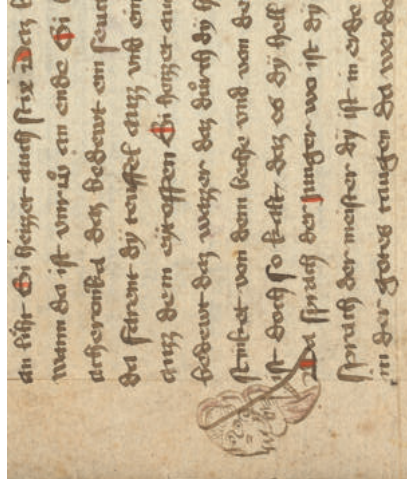 an liht Si heizzet auch stix Daz b
wann da ist vnruͦ an ende Si h
acheronta daz bedewt ein feur
da farent dy teuffel auzz vnd ein
auzz dem Si heizzet auch
bedewt daz wazzer daz durch dy h
stinket von dem beche vnd von de
ist doch so kalt daz es dy hell
Da sprach der Junger wo ist dy
sprach der meister dy ist in erde
in der gotes taugen da werde